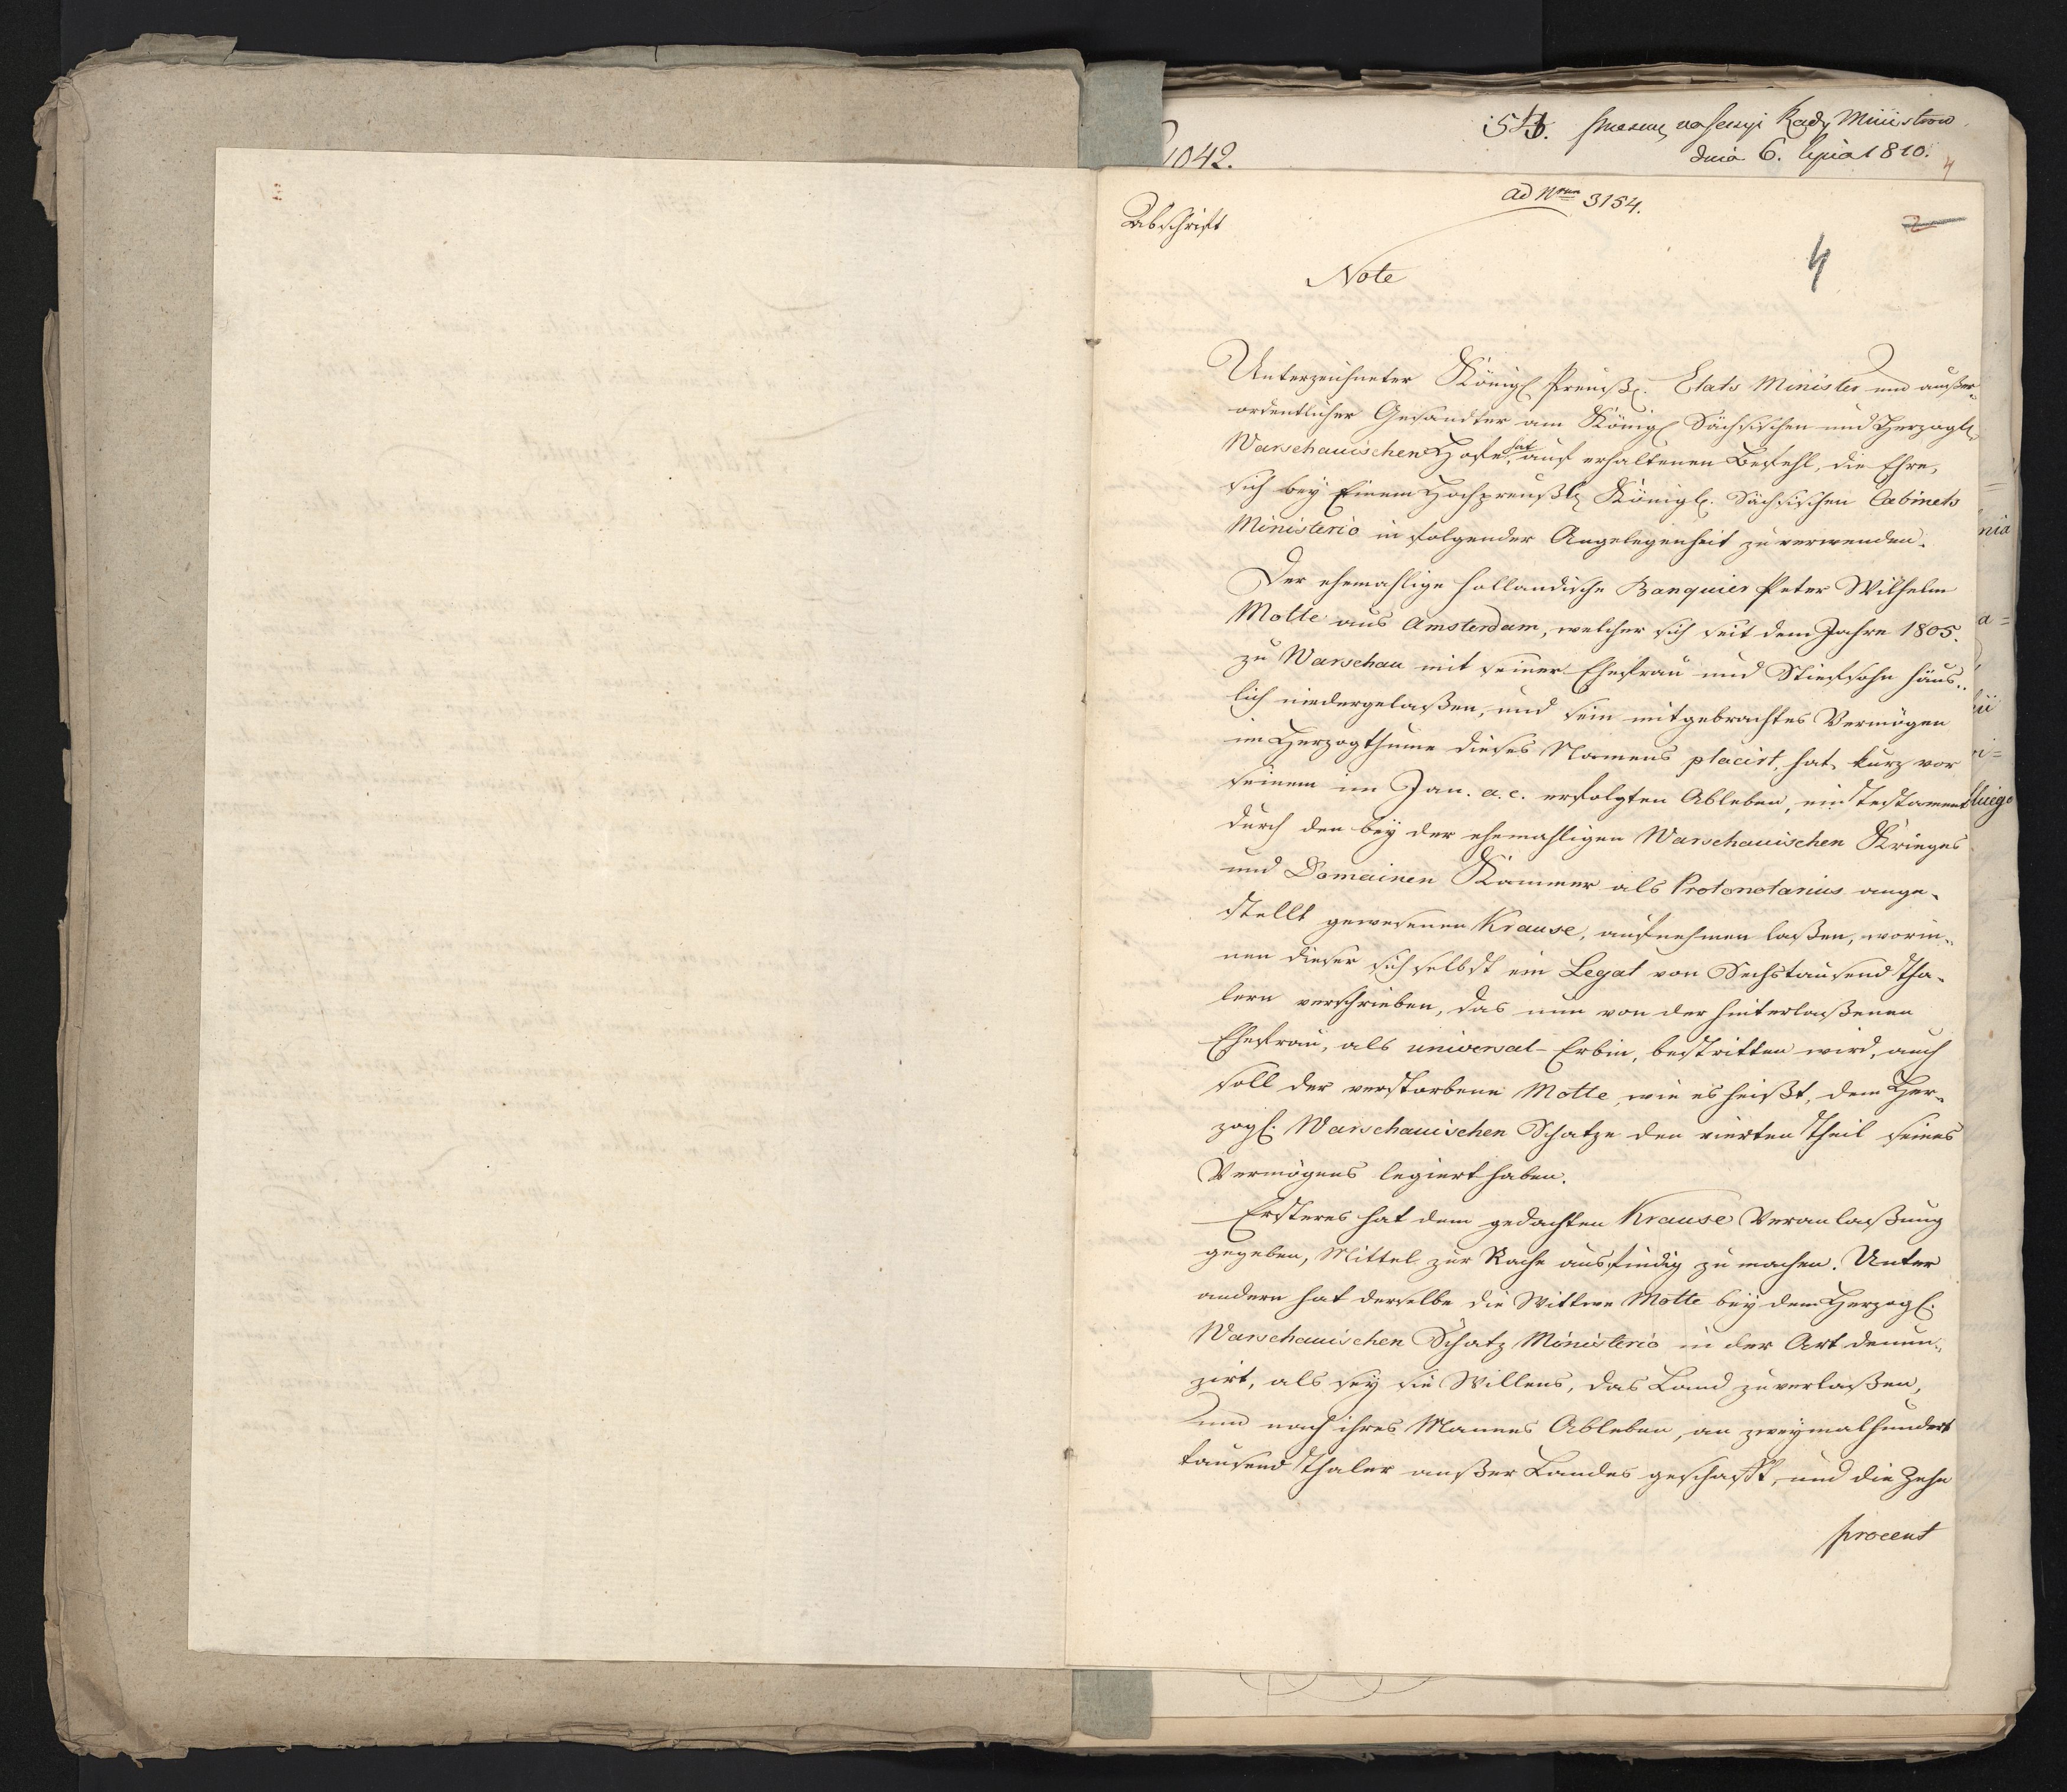 Rady Ministrow
dnia 6. lipca 1810.
1042.
4
ad Nrum 3154.
Abschrift
2
4
Note
Unterzeichneter Königl. Preuß. Etats Minister und außer-
ordentlicher Gesandter am Königl. Sächsischen und Herzogl.
Warschauischen Hofe, hat auf erhaltenen Befehl, die Ehre,
sich bey Einem Hochpreußl. Königl. Sächsischen Cabinets
Ministerio in folgender Angelegenheit zu verwenden.
Der ehemahlige holländische Banquier Peter Wilhelm
Motte aus Amsterdam, welcher sich seit dem Jahre 1805.
zu Warschau mit seiner Ehefrau und Stiefsohn häus-
lich niedergelaßen, und sein mitgebrachtes Vermögen
im Herzogthume dieses Namens placirt, hat kurz vor
seinem im Jan. a. c. erfolgten Ableben, ein Testament
durch den bey der ehemahligen Warschauischen Krieges
und Domainen Kammer als Protonotarius ange-
stellt gewesenen Krause, aufnehmen laßen, worin-
nen dieser sich selbst ein Legat von Sechstausend Tha-
lern verschrieben, das nun von der hinterlaßenen
Ehefrau, als universal-Erbin, bestritten wird, auch
soll der verstorbene Motte, wie es heißt, dem Her-
zogl. Warschauischen Schatze den vierten Theil seines
Vermögens legiert haben.
Ersteres hat dem gedachten Krause Veranlaßung
gegeben, Mittel zur Rache ausfindig zu machen. Unter
andern hat derselbe die Wittwe Motte bey dem Herzogl.
Warschauischen Schatz Ministerio in der Art denun-
zirt, als sey sie Willens, das Land zu verlaßen,
und nach ihres Mannes Ableben, an zweymalhundert
tausend Thaler außer Landes geschafft, und die Zehn
procent